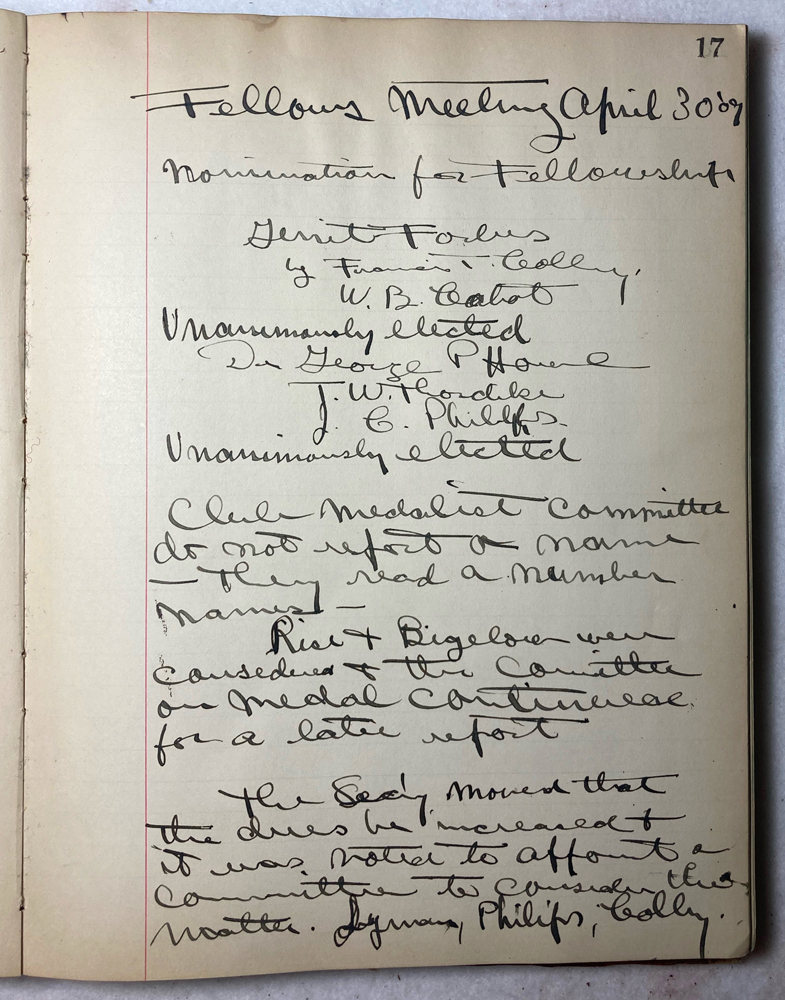 17
Fellows Meeting April 30 '09
Nomination for Fellowship
Gerrit Forbes
by Francis T. Colby,
W. B. Cabot
Unanimously elected
Dr George P Howe
T. W. Thorndike
J. C. Phillips.
Unanimously elected
Club Medalist Committee
do not report a name
— They read a number
names —
Rice & Bigelow were
considered & the Committee
on Medal continued
for a later report
The Secy moved that
the dues be increased &
it was voted to appoint a
committee to consider the
matter. Lyman, Philips, Colby.